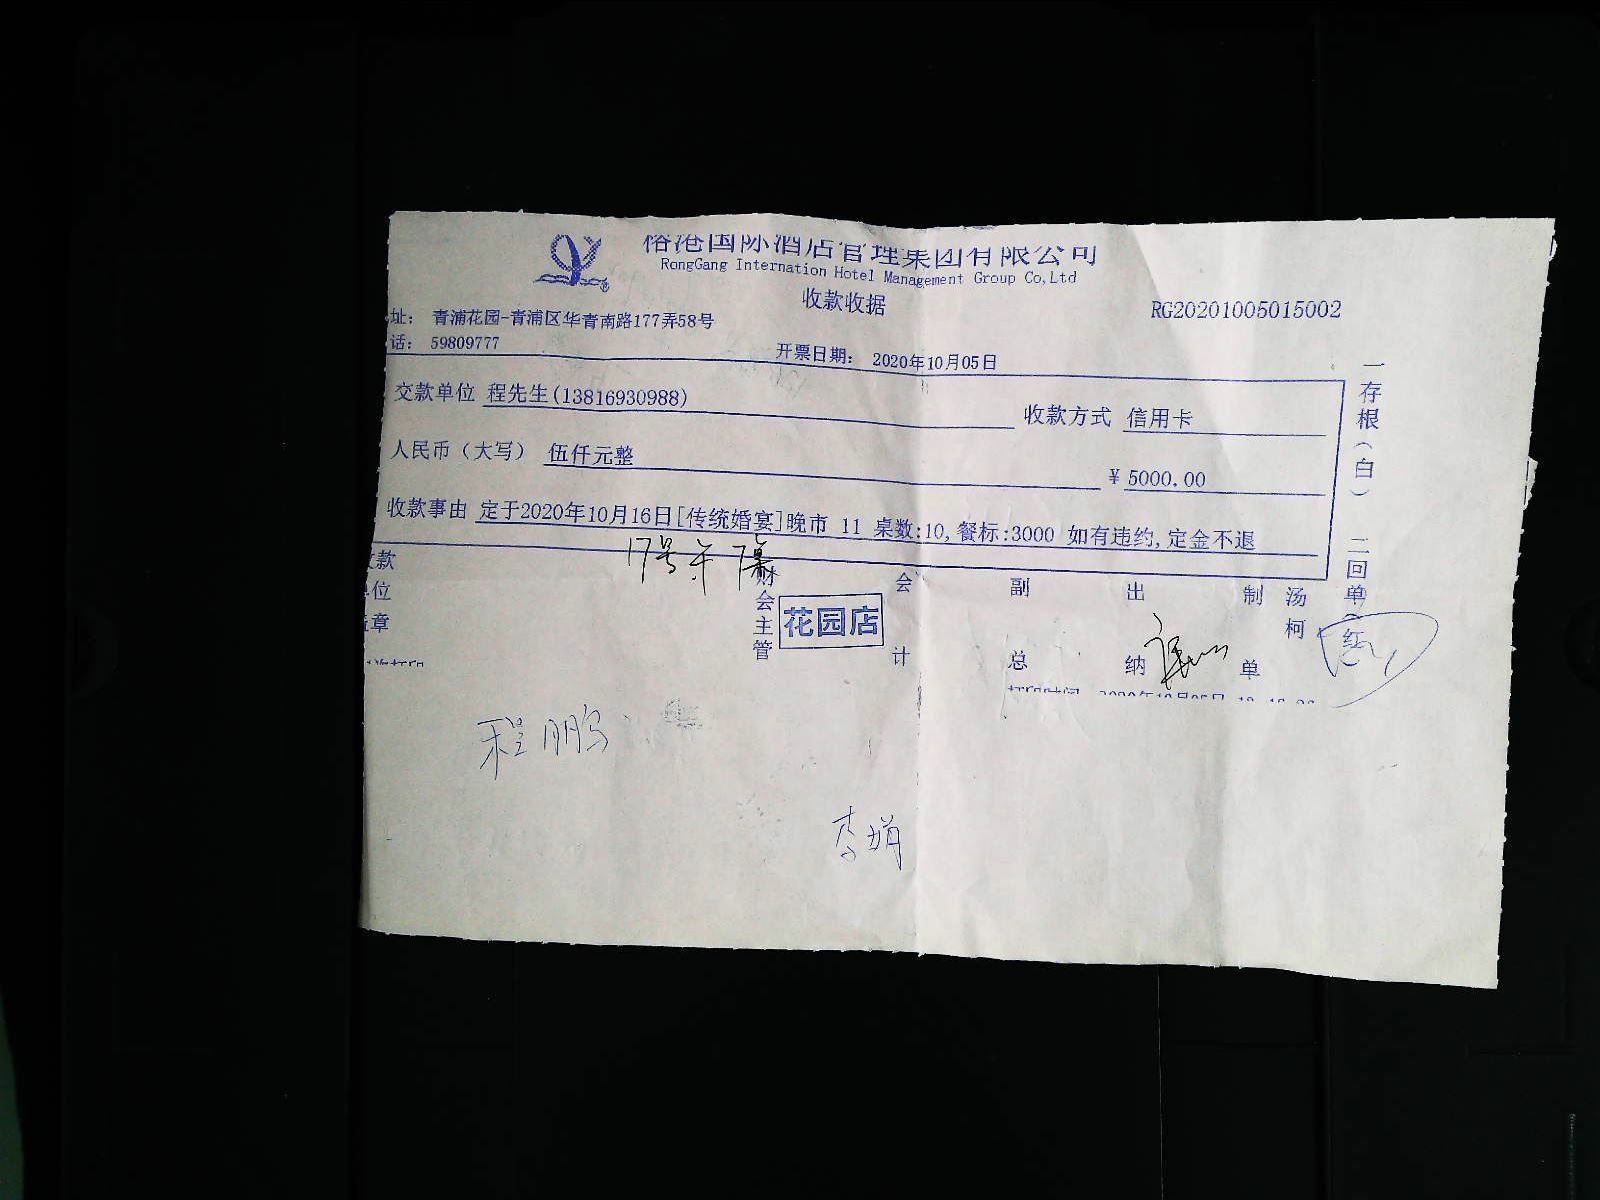 榕港国际酒店管理集团有限公司
RongGang Internation Hotel Management Group Co,Ltd
收款收据
RG20201005015002
址: 青浦花园-青浦区华青南路177弄58号
话: 59809777
开票日期: 2020年10月05日
交款单位 程先生(13816930988)
收款方式 信用卡
人民币（大写） 伍仟元整
¥ 5000.00
收款事由 定于2020年10月16日[传统婚宴]晚市 11 桌数:10,餐标:3000 如有违约,定金不退
17号午7桌
款
位
章
财会主管
花园店
会计
副总
出纳
制单
汤柯
一存根（白） 二回单（红
程鹏
李娟